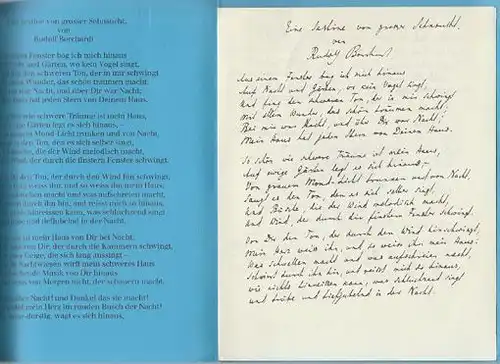 Eine Sestine von grosser Sehnsucht,
von
Rudolf Borchardt
Fenster bog ich mich hinaus
und Gärten, wo kein Vogel singt,
den schweren Ton, der in mir schwingt
Wunder, das schön träumen macht
war Nacht, und über Dir war Nacht;
hat jeden Stern von Deinem Haus.
wie schwere Träume ist mein Haus,
Gärten legt es sich hinaus,
Mond-Licht trunken und von Nacht,
den Ton, den es sich selber singt,
die der Wind melodisch macht,
Wind, der durch die finstern Fenster schwingt.
den Ton, der durch den Wind hin schwingt,
weiss ihn, und so weiss ihn mein Haus;
macht und was aufschreien macht,
durch ihn hin, und reisst mich so hinaus,
hinreissen kann, was schluchzend singt
und tiefkühlend in der Nacht.
ist mein Haus von Dir bei Nacht,
von Dir, der durch die Kammern schwingt,
Geige, die sich lang aussingt
wirft mein schweres Haus
Musik von Dir hinaus
Morgen nicht, der schauern macht.
Nacht! und Dunkel das sie macht!
mein Herz im runden Busch der Nacht!
wagt es sich hinaus,
Eine Sestine von grosser Sehnsucht,
von
Rudolf Borchardt
Aus einem Fenster bog ich mich hinaus
Auf Nacht und Gärten, wo kein Vogel singt,
Und fing den schweren Ton, der in mir schwingt
Mit allem Wunder, das schön träumen macht:
Bei mir war Nacht, und über Dir war Nacht;
Mein Haus hat jeden Stern von Deinem Haus.
So schön wie schwere Träume ist mein Haus,
Auf ewige Gärten legt es sich hinaus,
Von grauem Mond-Licht trunken und von Nacht,
Saugt es den Ton, den es sich selber singt,
Und Büsche, die der Wind melodisch macht,
Und Wind, der durch die finstern Fenster schwingt.
Von Dir den Ton, der durch den Wind hin schwingt,
Mein Herz weiss ihn, und so weiss ihn mein Haus;
Was schwellen macht und was aufschreien macht,
Schwimmt durch ihn hin, und reisst mich so hinaus,
Wie nichts hinreissen kann, was schluchzend singt
und trübe und tiefkühlend in der Nacht.